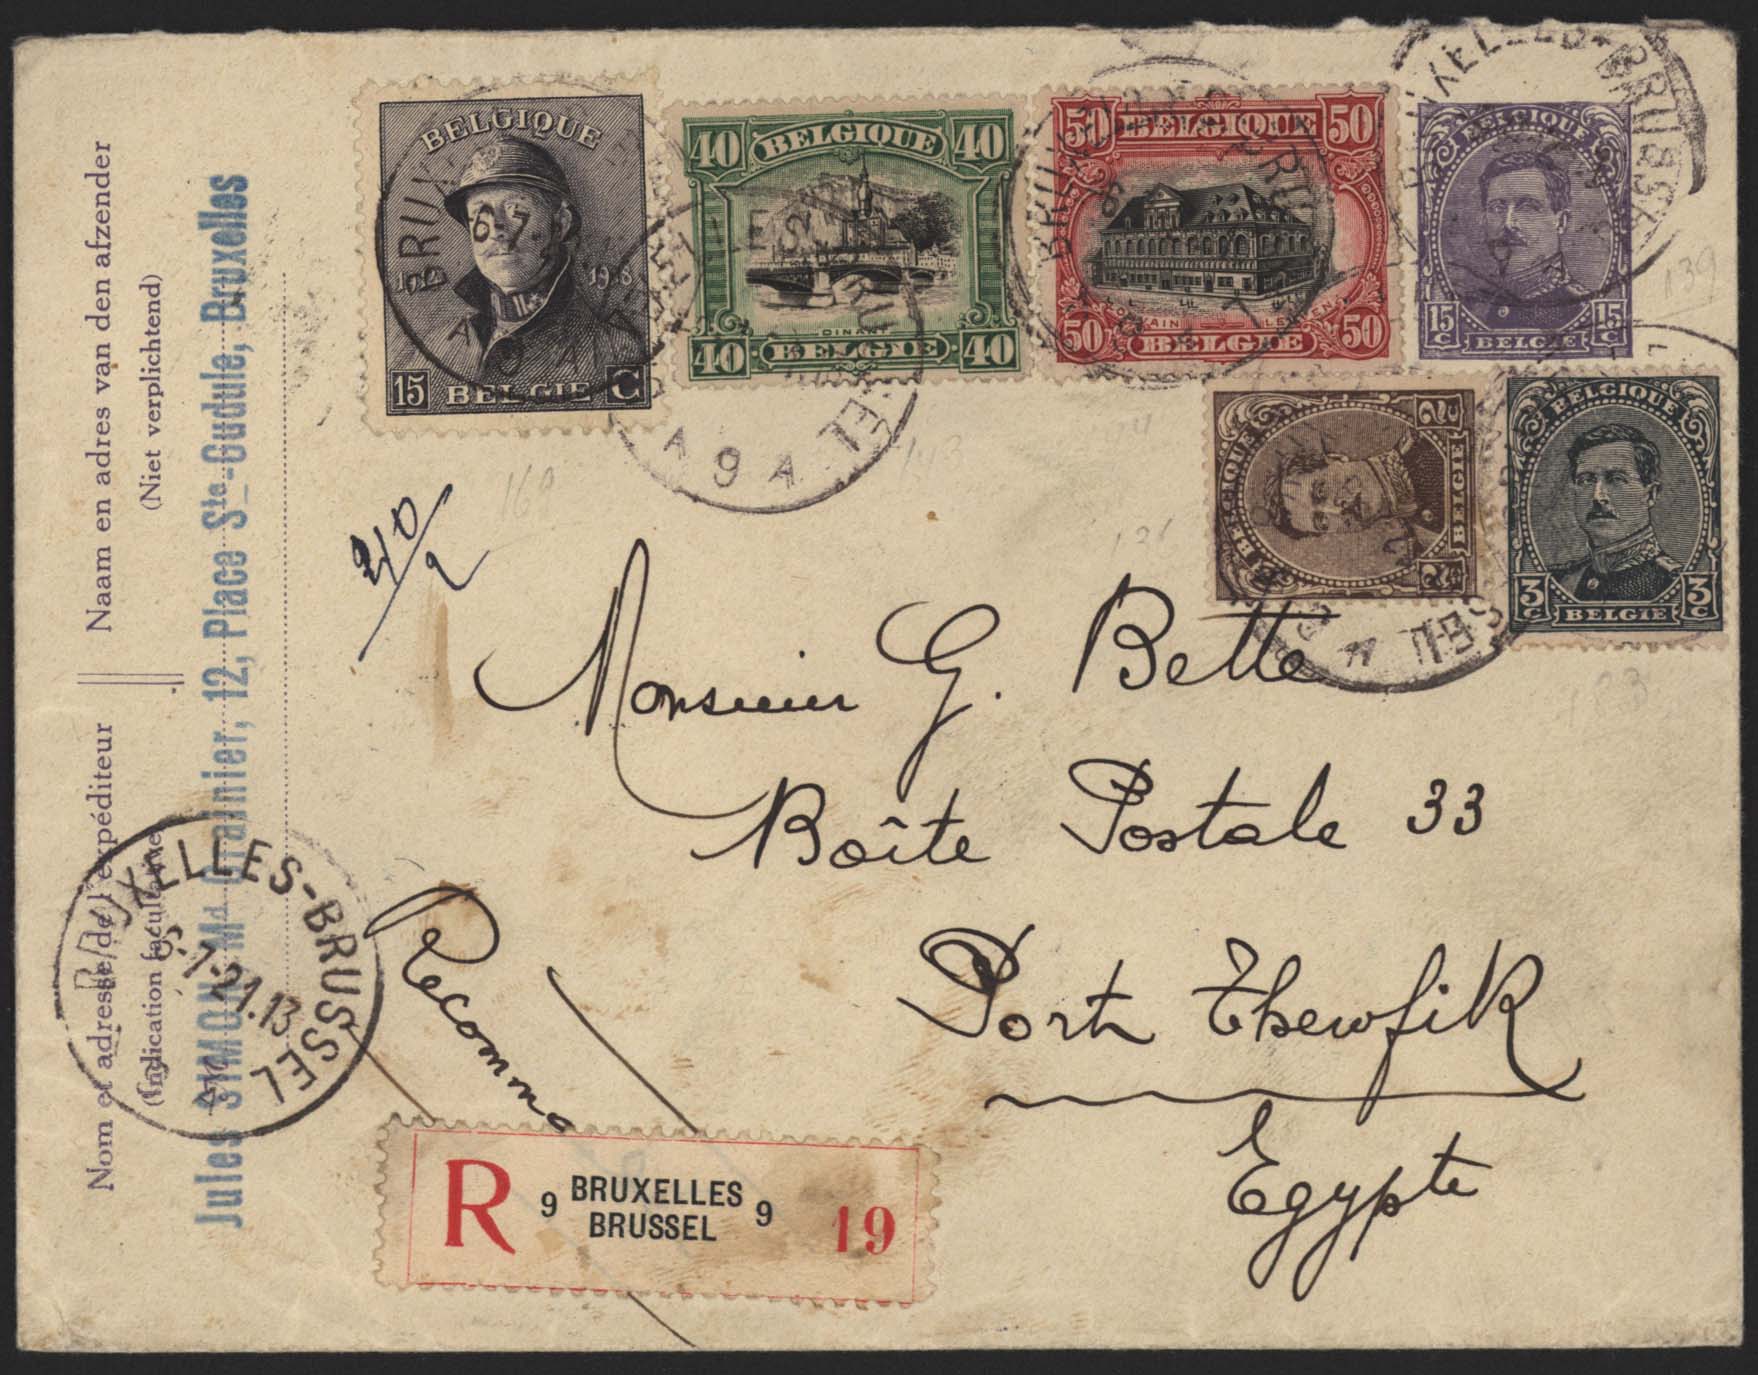 BELGIQUE
15 BELGIE C
40 BELGIQUE 40
DINANT
40 BELGIE 40
50 BELGIQUE 50
50 BELGIE 50
BELGIQUE
15 C 15 C
BELGIE
BELGIQUE
2c 2c
BELGIE
BELGIQUE
3 C 3 C
BELGIE
Naam en adres van den afzender
(Niet verplichtend)
Nom et adresse de l'expéditeur
(Indication facultative)
Jules SIMON Md Grainier, 12, Place Ste-Gudule, Bruxelles
BRUXELLES-BRUSSEL
6-7-21.13
40/2
Monsieur G. Bette
Boîte Postale 33
Port Thewfik
Egypte
Recommo
R 9 BRUXELLES 9 19
BRUSSEL
169
143
126
139
183